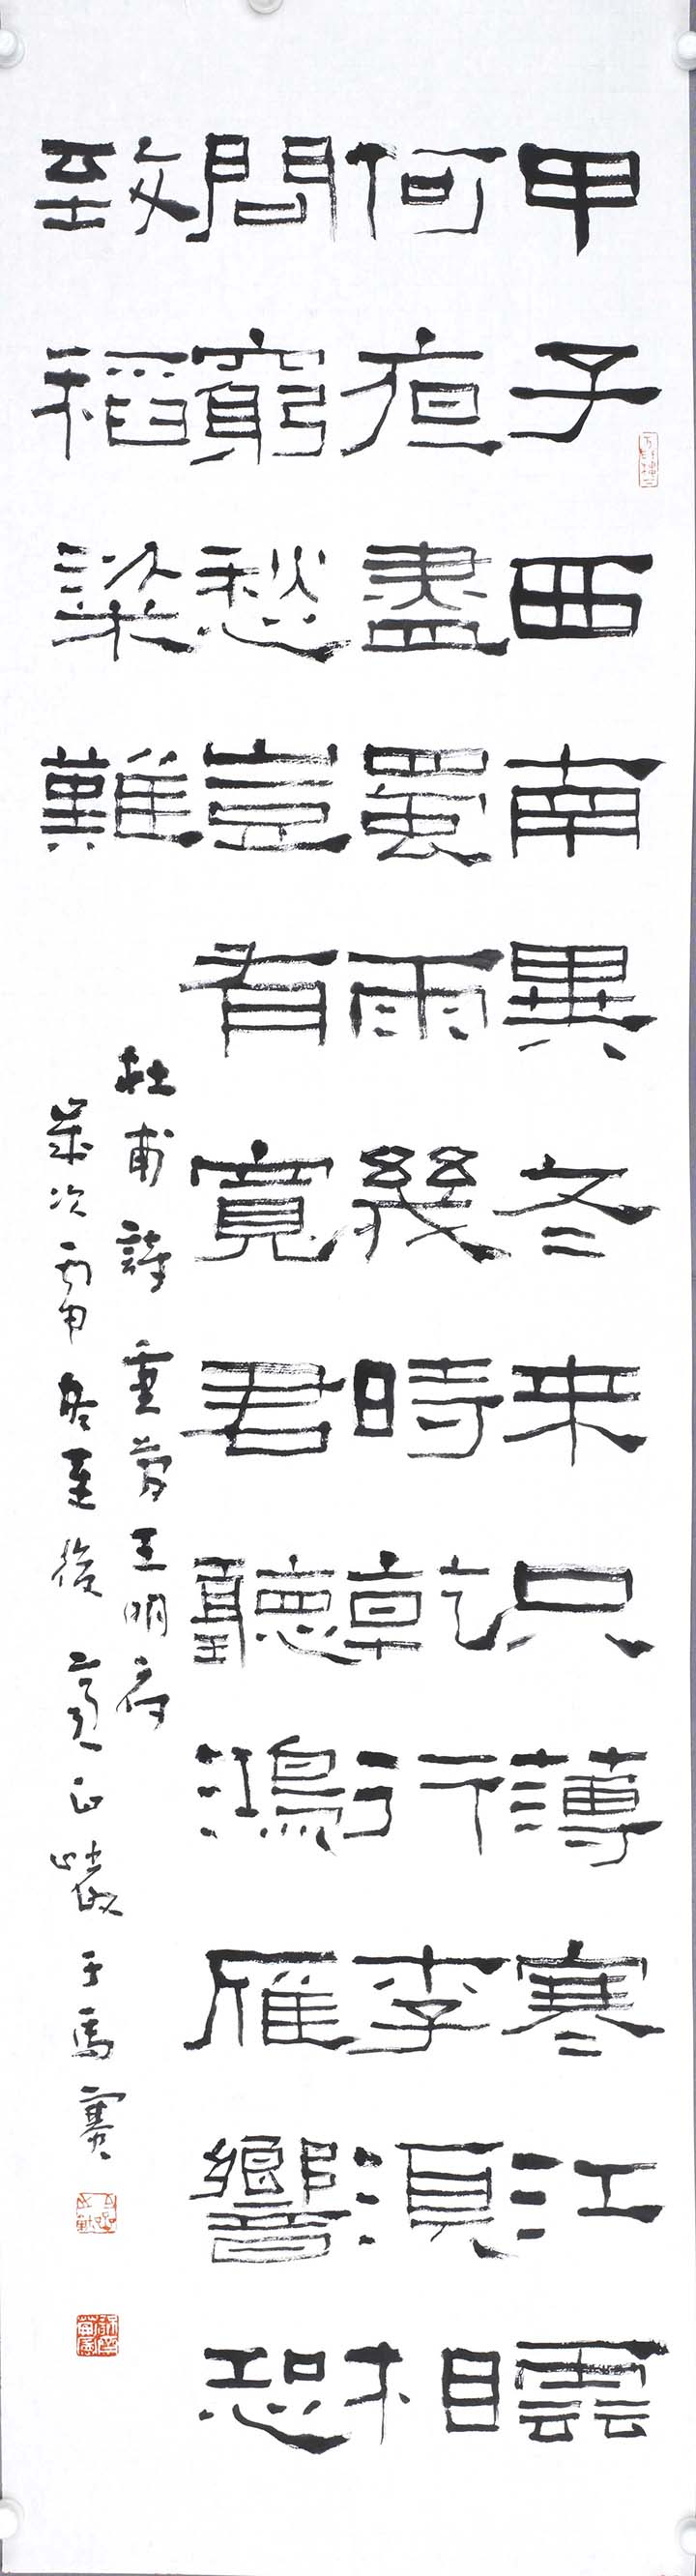 甲子西南異冬来只薄寒江雲
何夜盡蜀雨幾時乾行李湏相
問窮愁豈有寬君聽鴻雁響恐
致稻梁難
杜甫詩重簡王明府
歲次丙申冬至後于馬賽